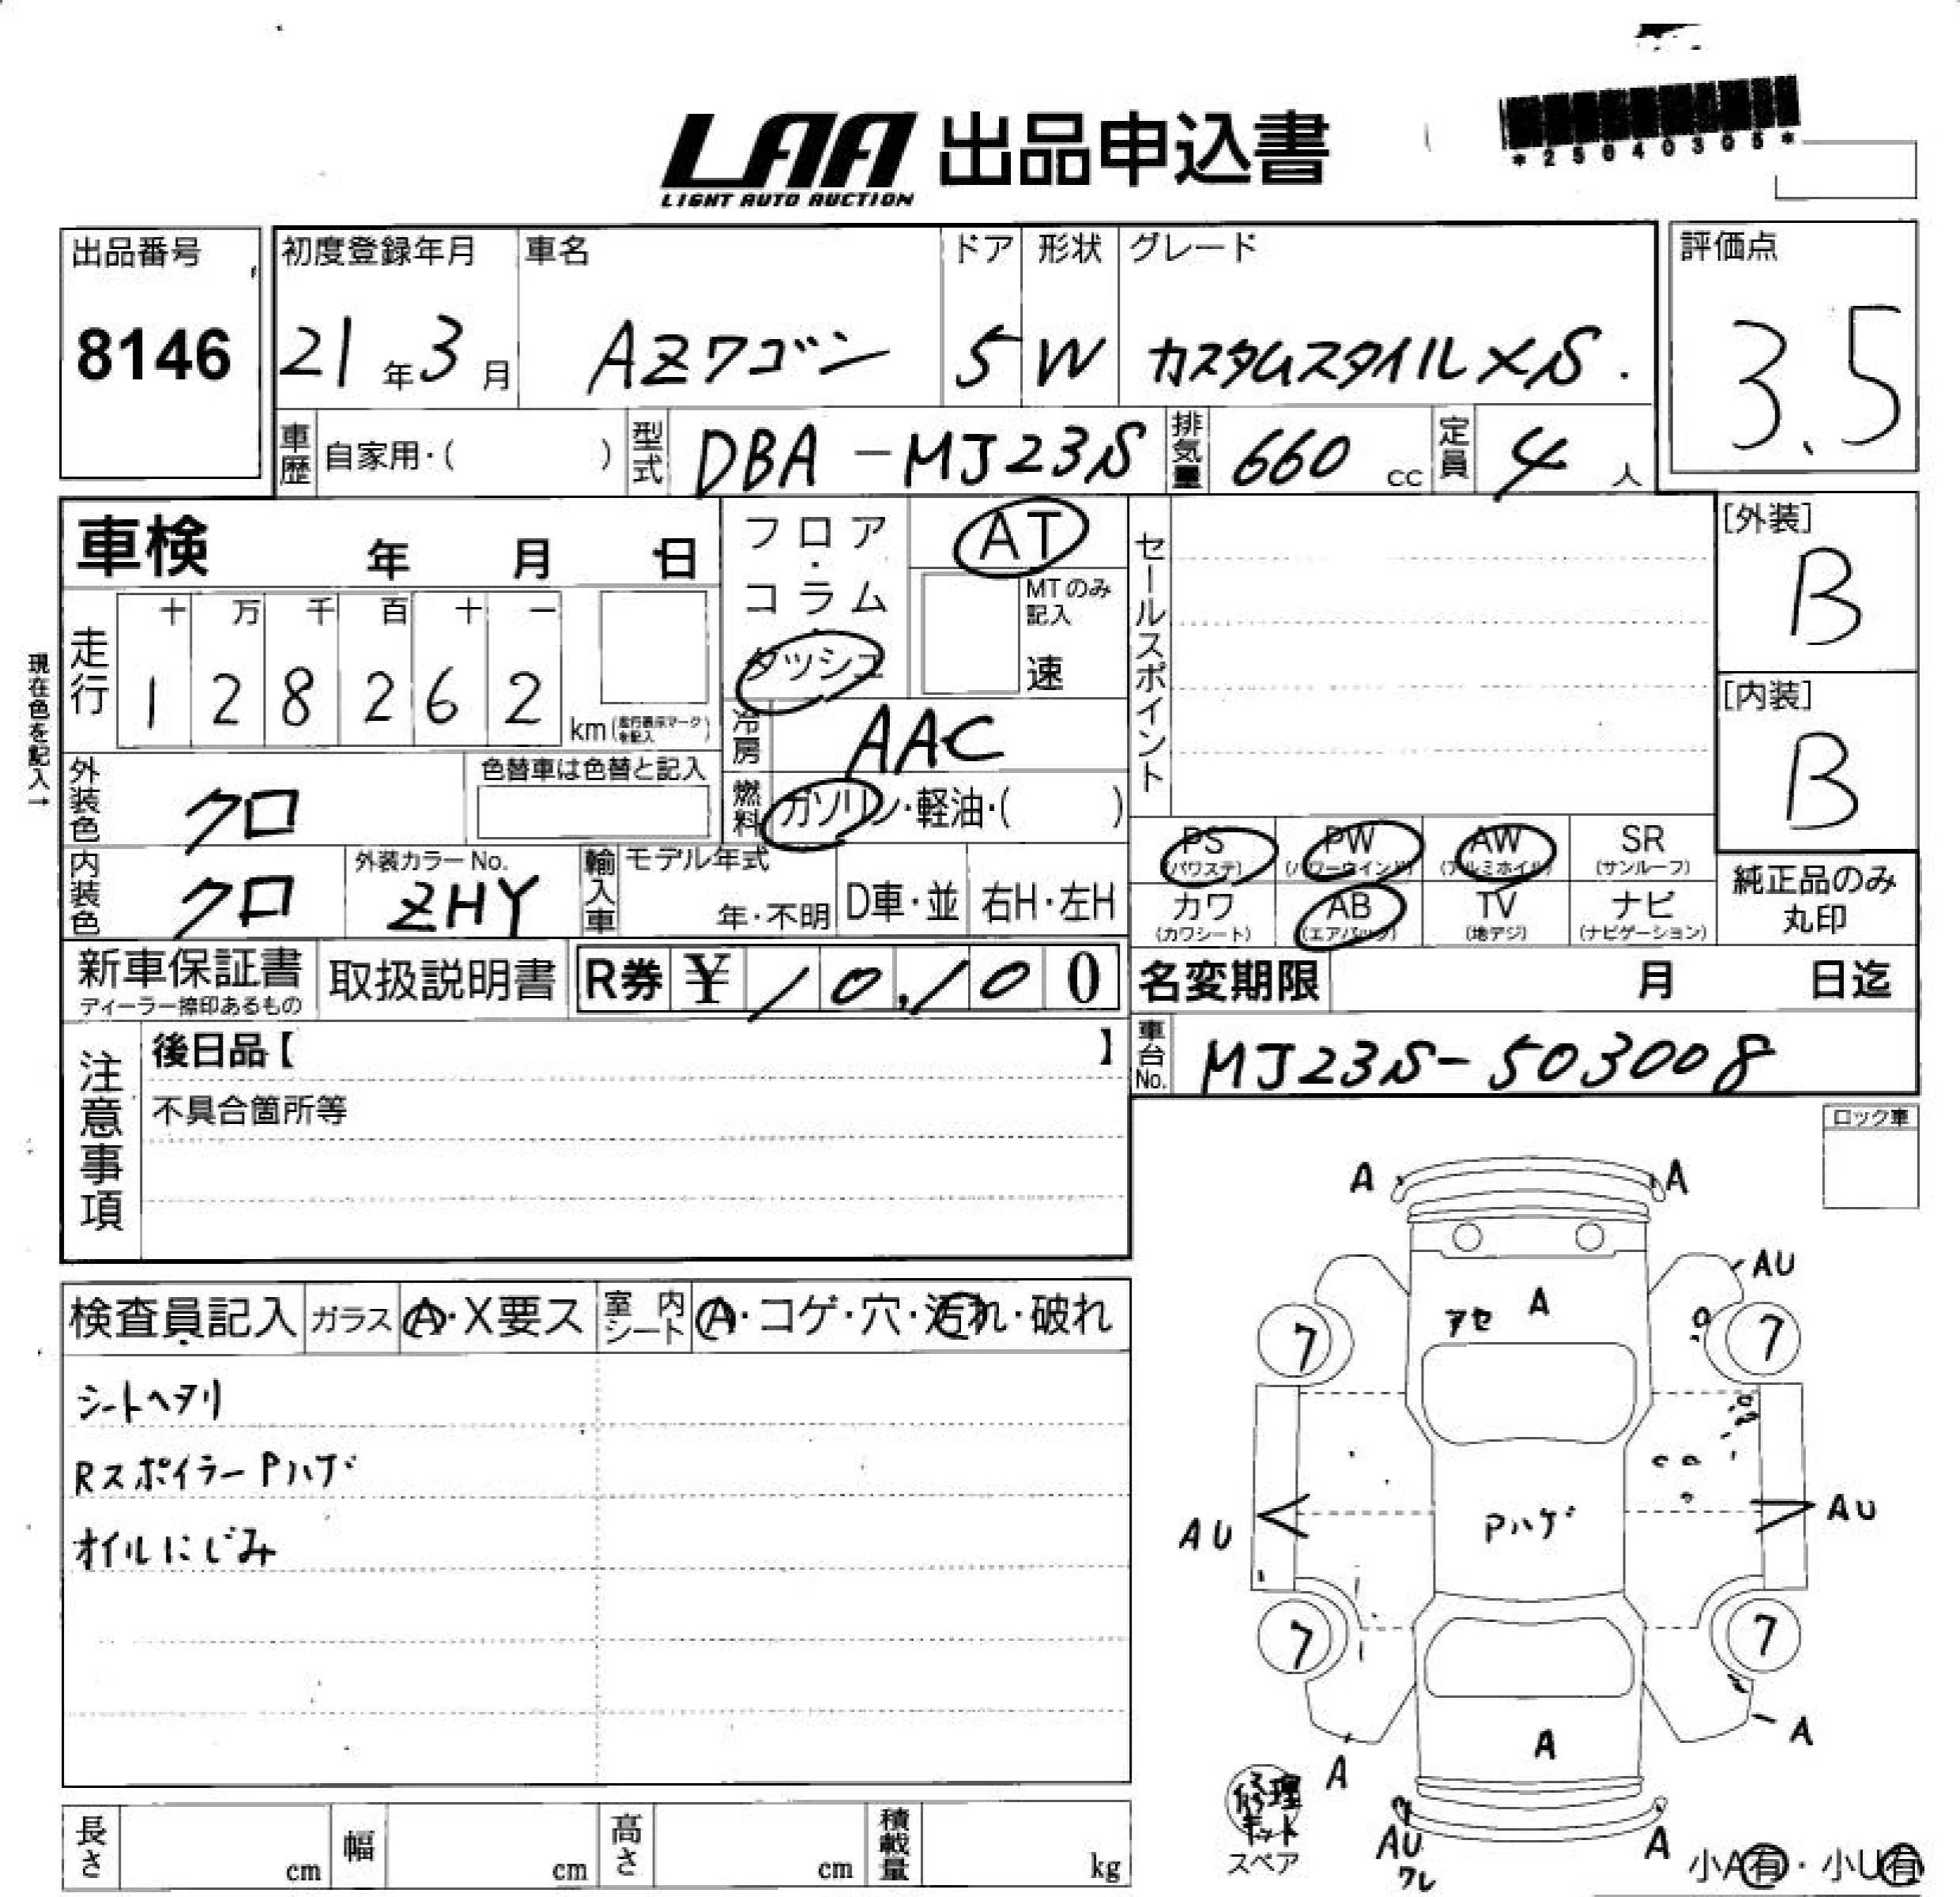 LAA 出品申込書
LIGHT AUTO AUCTION
*25040305*
出品番号
8146
初度登録年月
21年3月
車名
AZワゴン
ドア
5
形状
W
グレード
カスタムスタイルXS.
評価点
3.5
車歴 自家用・( )
型式 DBA-MJ23S
排気量 660 cc
定員 4人
車検 年 月 日
フロア・コラム・ダッシュ
AT
MTのみ記入
速
セールスポイント
[外装]
B
[内装]
B
現在色を記入→
走行
十 万 千 百 十 一
1 2 8 2 6 2
km (走行表示マークを記入)
冷房 AAC
外装色 クロ
色替車は色替と記入
燃料 ガソリン・軽油・( )
PS (パワステ) PW (パワーウインド) AW (アルミホイル) SR (サンルーフ)
カワ (カワシート) AB (エアバック) TV (地デジ) ナビ (ナビゲーション)
純正品のみ丸印
内装色 クロ
外装カラーNo.
ZHY
輸入車 モデル年式
年・不明 D車・並 右H・左H
新車保証書
ディーラー捺印あるもの
取扱説明書
R券 ¥10,100
名変期限 月 日迄
車台No. MJ23S-503008
注意事項
後日品【 】
不具合箇所等
ロック車
検査員記入 ガラス A・X要ス 室内シート A・コゲ・穴・汚れ・破れ
シートヘタリ
Rスポイラー Pハゲ
オイルにじみ
A
A
AU
アセ A
7
7
AU
AU
Pハゲ
7
7
A
A
A
修理キット
スペア
AU
ワレ
A
小A有・小U有
長さ cm 幅 cm 高さ cm 積載量 kg